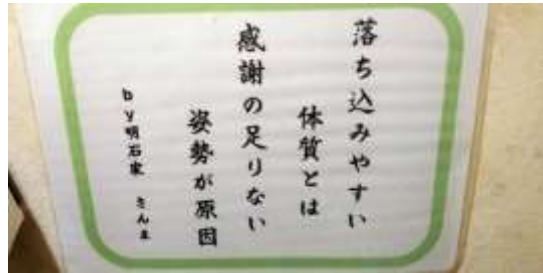 落ち込みやすい
体質とは
感謝の足りない
姿勢が原因
by明石家 さんま